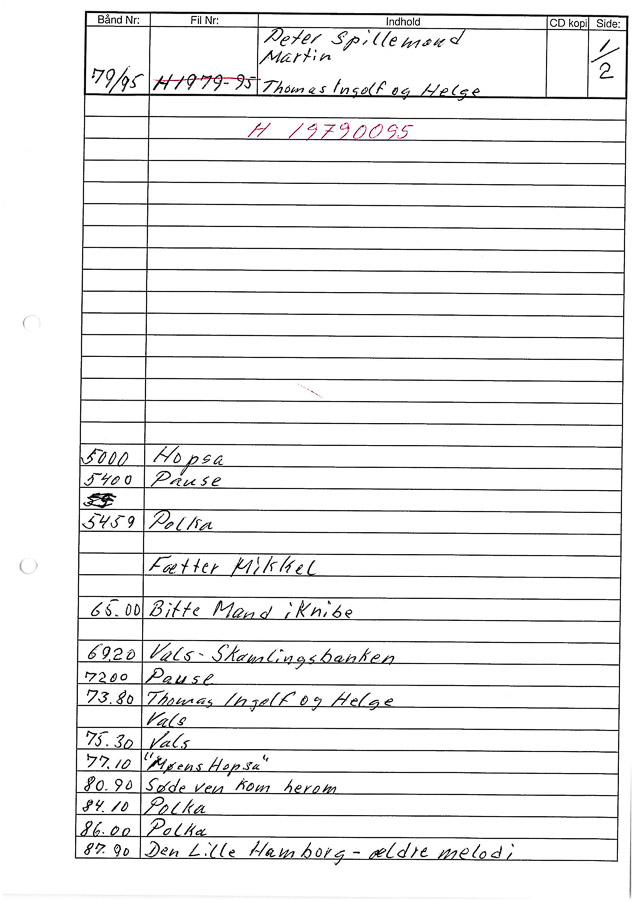 Bånd Nr: Fil Nr: Indhold CD kopi Side:
Peter Spillemand
Martin
79/95 H1979-95 Thomas Ingolf og Helge 1/2
H 19790095
5000 Hopsa
5400 Pause
5459 Polka
Fætter Mikkel
65.00 Bitte Mand i Knibe
69.20 Vals - Skamlingsbanken
7200 Pause
73.80 Thomas Ingolf og Helge
Vals
75.30 Vals
77.10 "Møens Hopsa"
80.90 Søde ven kom herom
84.10 Polka
86.00 Polka
87.90 Den Lille Hamborg - ældre melodi